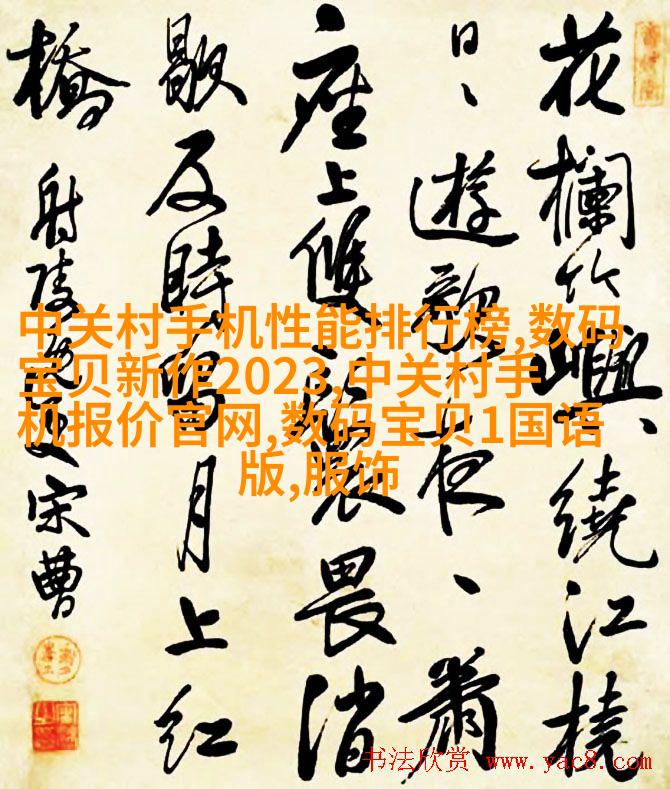 花欄竹嶼、繞江橈
日、遊歌夜、蕭
座上雙畏消
歇反時月上紅
橋 射陵逸史宋曹
中关村手机性能排行榜,数码
宝贝新作2023,中关村手
机报价官网,数码宝贝1国语
版,服饰
书法欣赏 www.yac8.com